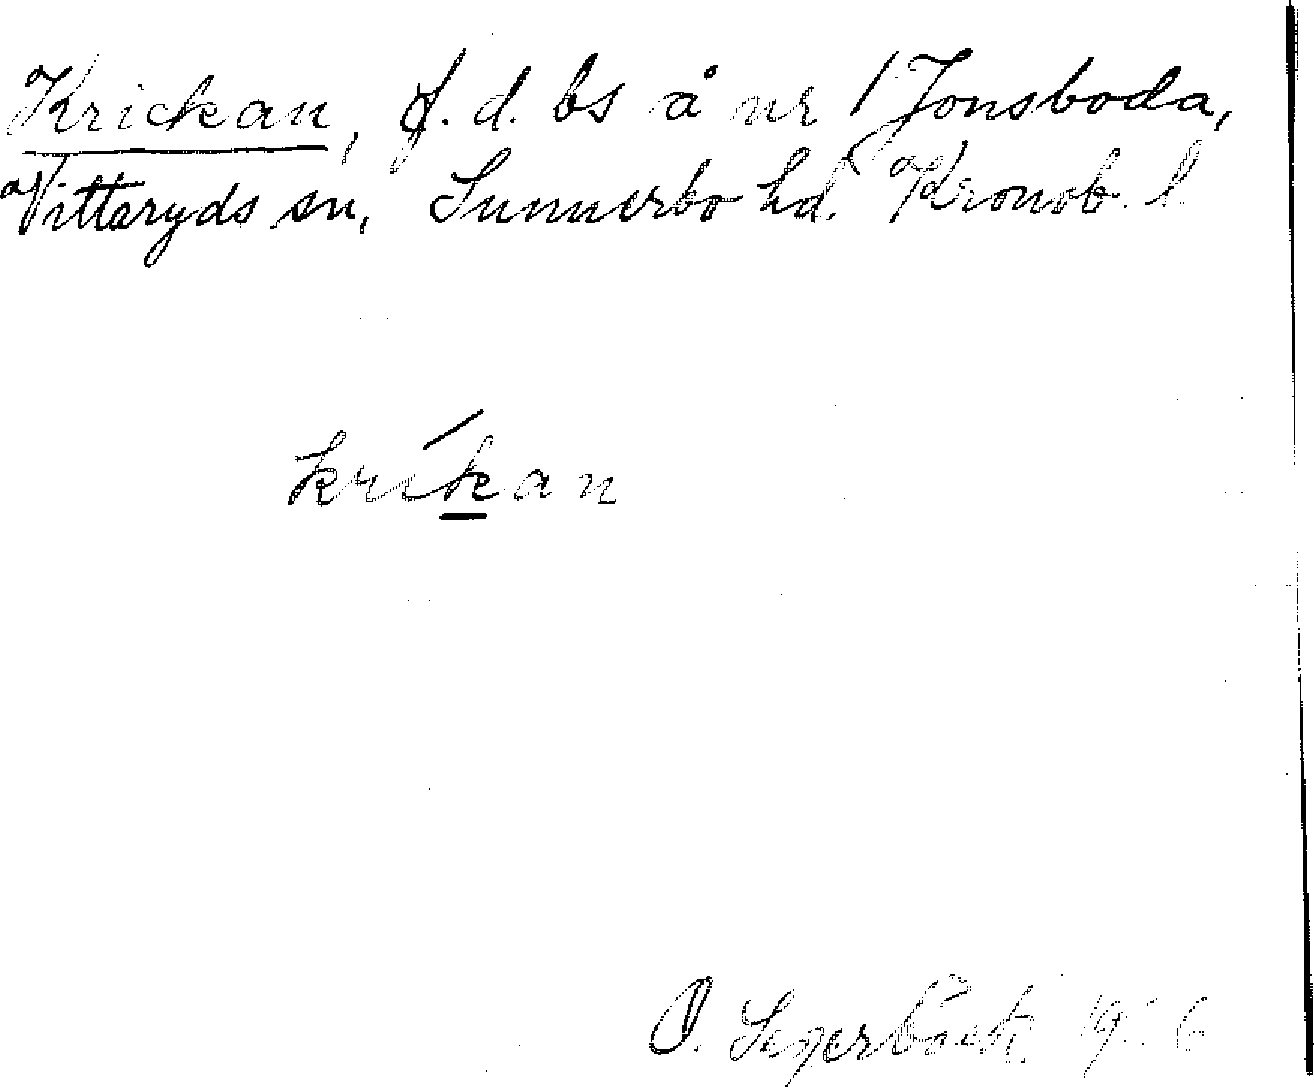 Krickan, f. d. bs å nr 1 Jonsboda,
Vittaryds sn, Sunnerbo hd. Kronob. l.
kríkan
O. Segerbäck